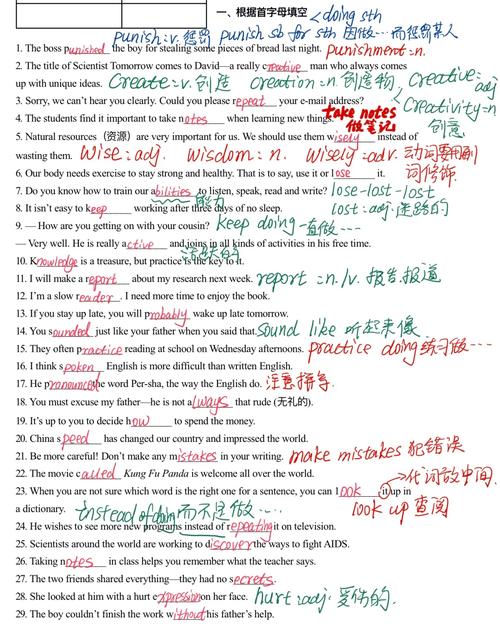 一、根据首字母填空 < doing sth
punish: v. 惩罚 punish sb for sth 因做…而惩罚某人
1. The boss punished the boy for stealing some pieces of bread last night. punishment = n.
2. The title of Scientist Tomorrow comes to David—a really creative man who always comes
up with unique ideas. Create = v. 创造 creation = n. 创造物, Creative = adj
3. Sorry, we can't hear you clearly. Could you please repeat your e-mail address? Creativity = n
创意
4. The students find it important to take notes when learning new things. take notes
做笔记
5. Natural resources (资源) are very important for us. We should use them wisely instead of
wasting them. Wise = adj. wisdom = n. wisely = adv. 动词要用副
词修饰.
6. Our body needs exercise to stay strong and healthy. That is to say, use it or lose it.
7. Do you know how to train our abilities to listen, speak, read and write? lose-lost-lost
能力
8. It isn't easy to keep working after three days of no sleep. lost: adj. 迷路的
9. — How are you getting on with your cousin? Keep doing 一直做…
— Very well. He is really active and joins in all kinds of activities in his free time.
活跃
10. Knowledge is a treasure, but practice is the key to it.
11. I will make a report about my research next week. report = n./v. 报告.报道
12. I'm a slow reader. I need more time to enjoy the book.
13. If you stay up late, you will probably wake up late tomorrow.
14. You sounded just like your father when you said that. sound like 听起来像
15. They often practice reading at school on Wednesday afternoons. practice doing 练习做…
16. I think spoken English is more difficult than written English.
17. He pronounced the word Per-sha, the way the English do. 注意拼写.
18. You must excuse my father—he is not always that rude (无礼的).
19. It's up to you to decide how to spend the money.
20. China speed has changed our country and impressed the world.
21. Be more careful! Don't make any mistakes in your writing. make mistakes 犯错误
22. The movie called Kung Fu Panda is welcome all over the world.
代词放中间.
23. When you are not sure which word is the right one for a sentence, you can look it up in
a dictionary. instead of doing 而不是做… look up 查阅
24. He wishes to see more new programs instead of repeating it on television.
25. Scientists around the world are working to discover the ways to fight AIDS.
26. Taking notes in class helps you remember what the teacher says.
27. The two friends shared everything—they had no secrets.
28. She looked at him with a hurt expression on her face. hurt: adj. 受伤的.
29. The boy couldn't finish the work without his father's help.